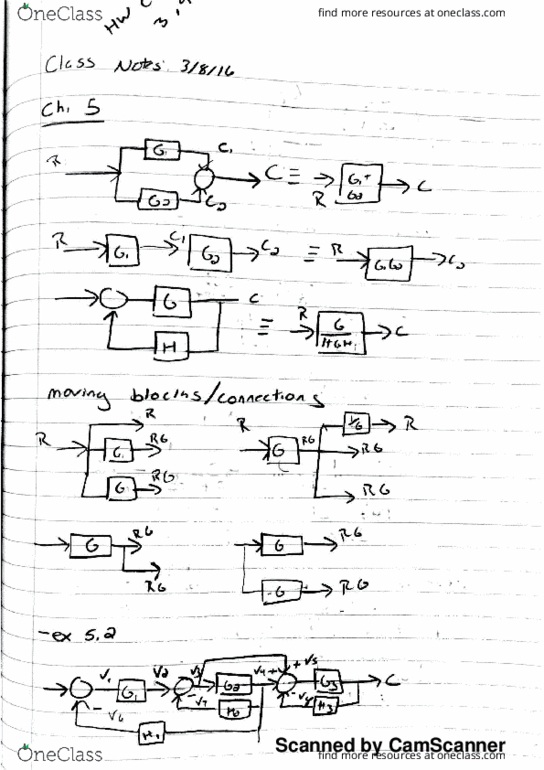 OneClass
find more resources at oneclass.com
HW C
3,
Class Notes 3/8/16
Ch. 5
R G1 C1
G2 C2
C ≡ R G1+G2 C
R G1 C1 G2 C2 ≡ R G1G2 C2
G C
H
≡ R G/1+GH C
moving blocks/connections
R
R G RG
G RG
R G RG 1/G R
RG
RG
G RG
RG
G RG
G RG
-ex 5.2
V1 G1 V2 V3 G2 V4 + + V5 G3 C
- V6 - V7 H2 - V8 H3
H1
Scanned by CamScanner
OneClass
find more resources at oneclass.com